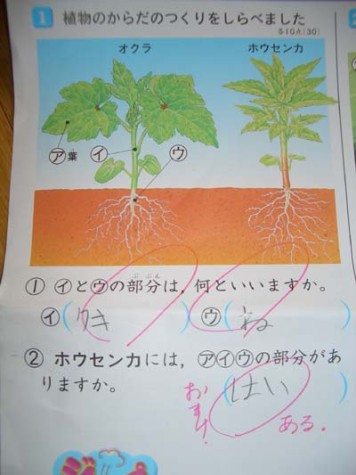 1 植物のからだのつくりをしらべました
各10点(30)
オクラ ホウセンカ
㋐葉 ㋑ ㋒
① ㋑と㋒の部分は、何といいますか。
ぶぶん
㋑( くき ) ㋒( ね )
② ホウセンカには、㋐㋑㋒の部分があ
りますか。
( はい )
ある。